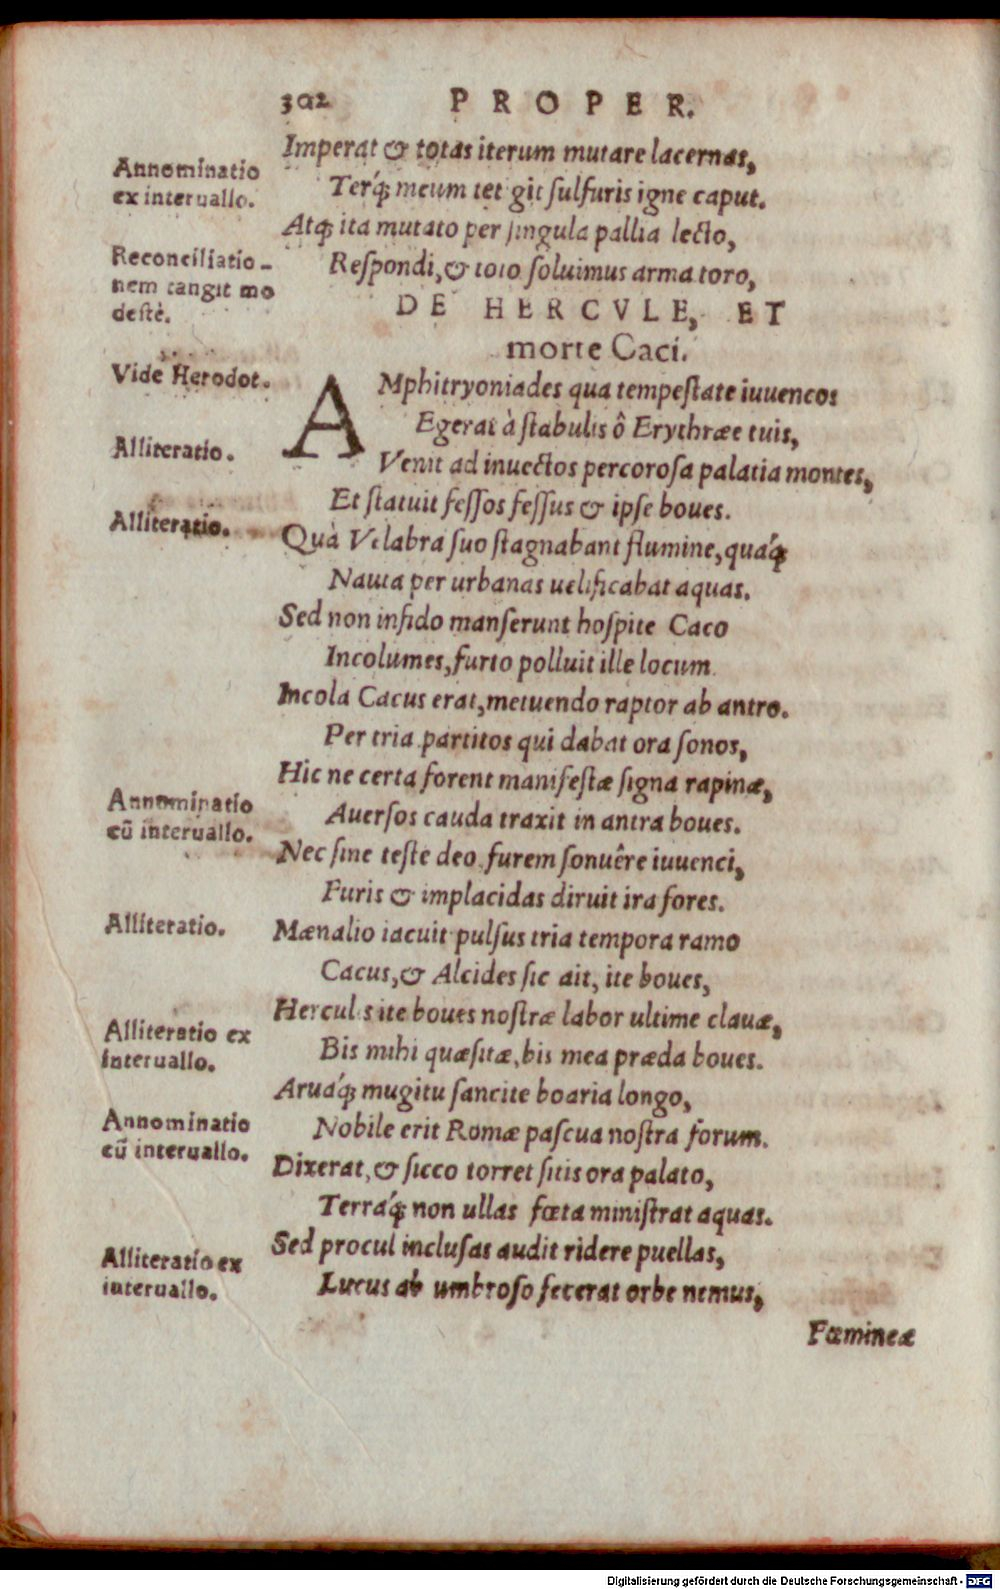 302 PROPER.
Imperat & totas iterum mutare lacernas,
Annominatio
ex interuallo.
Terq́; meum tetgit sulfuris igne caput.
Atq; ita mutato per singula pallia lecto,
Reconciliatio-
nem tangit mo
destè.
Respondi, & toto soluimus arma toro,
DE HERCVLE, ET
morte Caci.
Vide Herodot.
AMphitryoniades qua tempestate iuuencos
Egerat à stabulis ô Erythræe tuis,
Alliteratio.
Venit ad inuectos percorosa palatia montes,
Et statuit fessos fessus & ipse boues.
Alliteratio.
Quà Velabra suo stagnabant flumine, quaq́;
Nauta per urbanas uelificabat aquas.
Sed non infido manserunt hospite Caco
Incolumes, furto polluit ille locum
Incola Cacus erat, metuendo raptor ab antro.
Per tria partitos qui dabat ora sonos,
Hic ne certa forent manifestæ signa rapinæ,
Annominatio
cū interuallo.
Auersos cauda traxit in antra boues.
Nec sine teste deo furem sonuêre iuuenci,
Furis & implacidas diruit ira fores.
Alliteratio.
Mænalio iacuit pulsus tria tempora ramo
Cacus, & Alcides sic ait, ite boues,
Hercul s ite boues nostræ labor ultime clauæ,
Alliteratio ex
interuallo.
Bis mihi quæsitæ, bis mea præda boues.
Aruaq́; mugitu sancite boaria longo,
Annominatio
cū interuallo.
Nobile erit Romæ pascua nostra forum.
Dixerat, & sicco torret sitis ora palato,
Terraq́; non ullas fœta ministrat aquas.
Sed procul inclusas audit ridere puellas,
Alliteratio ex
interuallo.
Lucus ab umbroso fecerat orbe nemus,
Fœmineæ
Digitalisierung gefördert durch die Deutsche Forschungsgemeinschaft - DFG